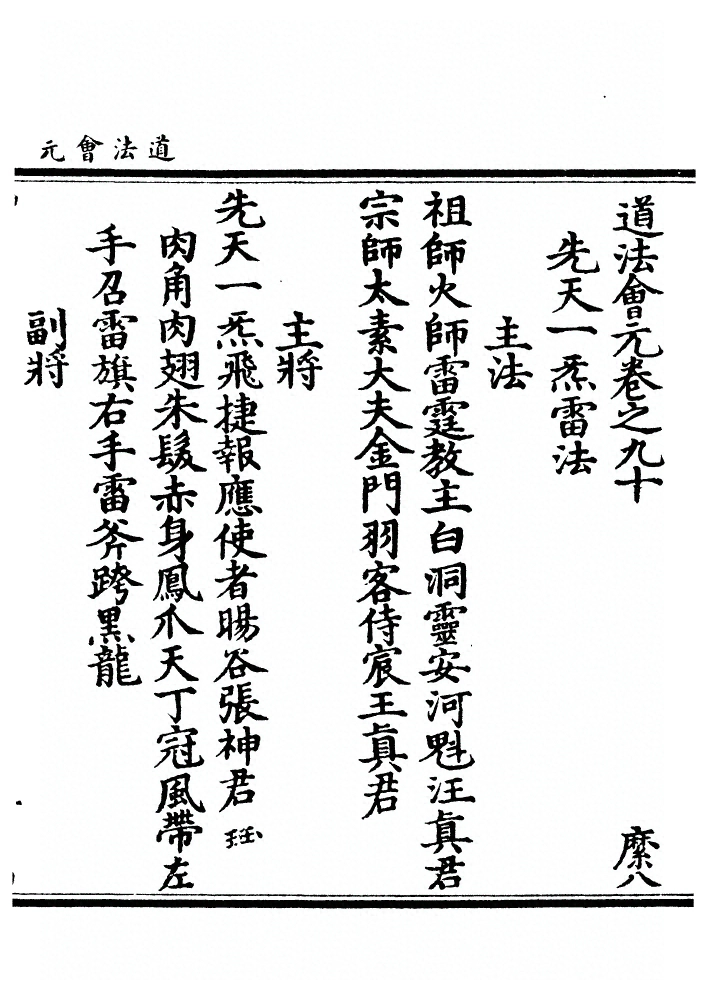 道法會元
道法會元卷之九十 縻八
先天一炁雷法
主法
祖師火師雷霆教主白洞靈安河魁汪眞君
宗師太素大夫金門羽客侍宸王眞君
主將
先天一炁飛捷報應使者暘谷張神君珏
肉角肉翅朱髮赤身鳳爪天丁冠風帶左
手召雷旗右手雷斧跨黑龍
副將